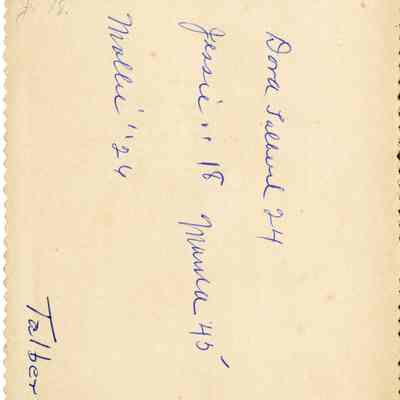 Dora Talbert 24
Jessie " 18 Manila '45
Mollie " 24
Talber